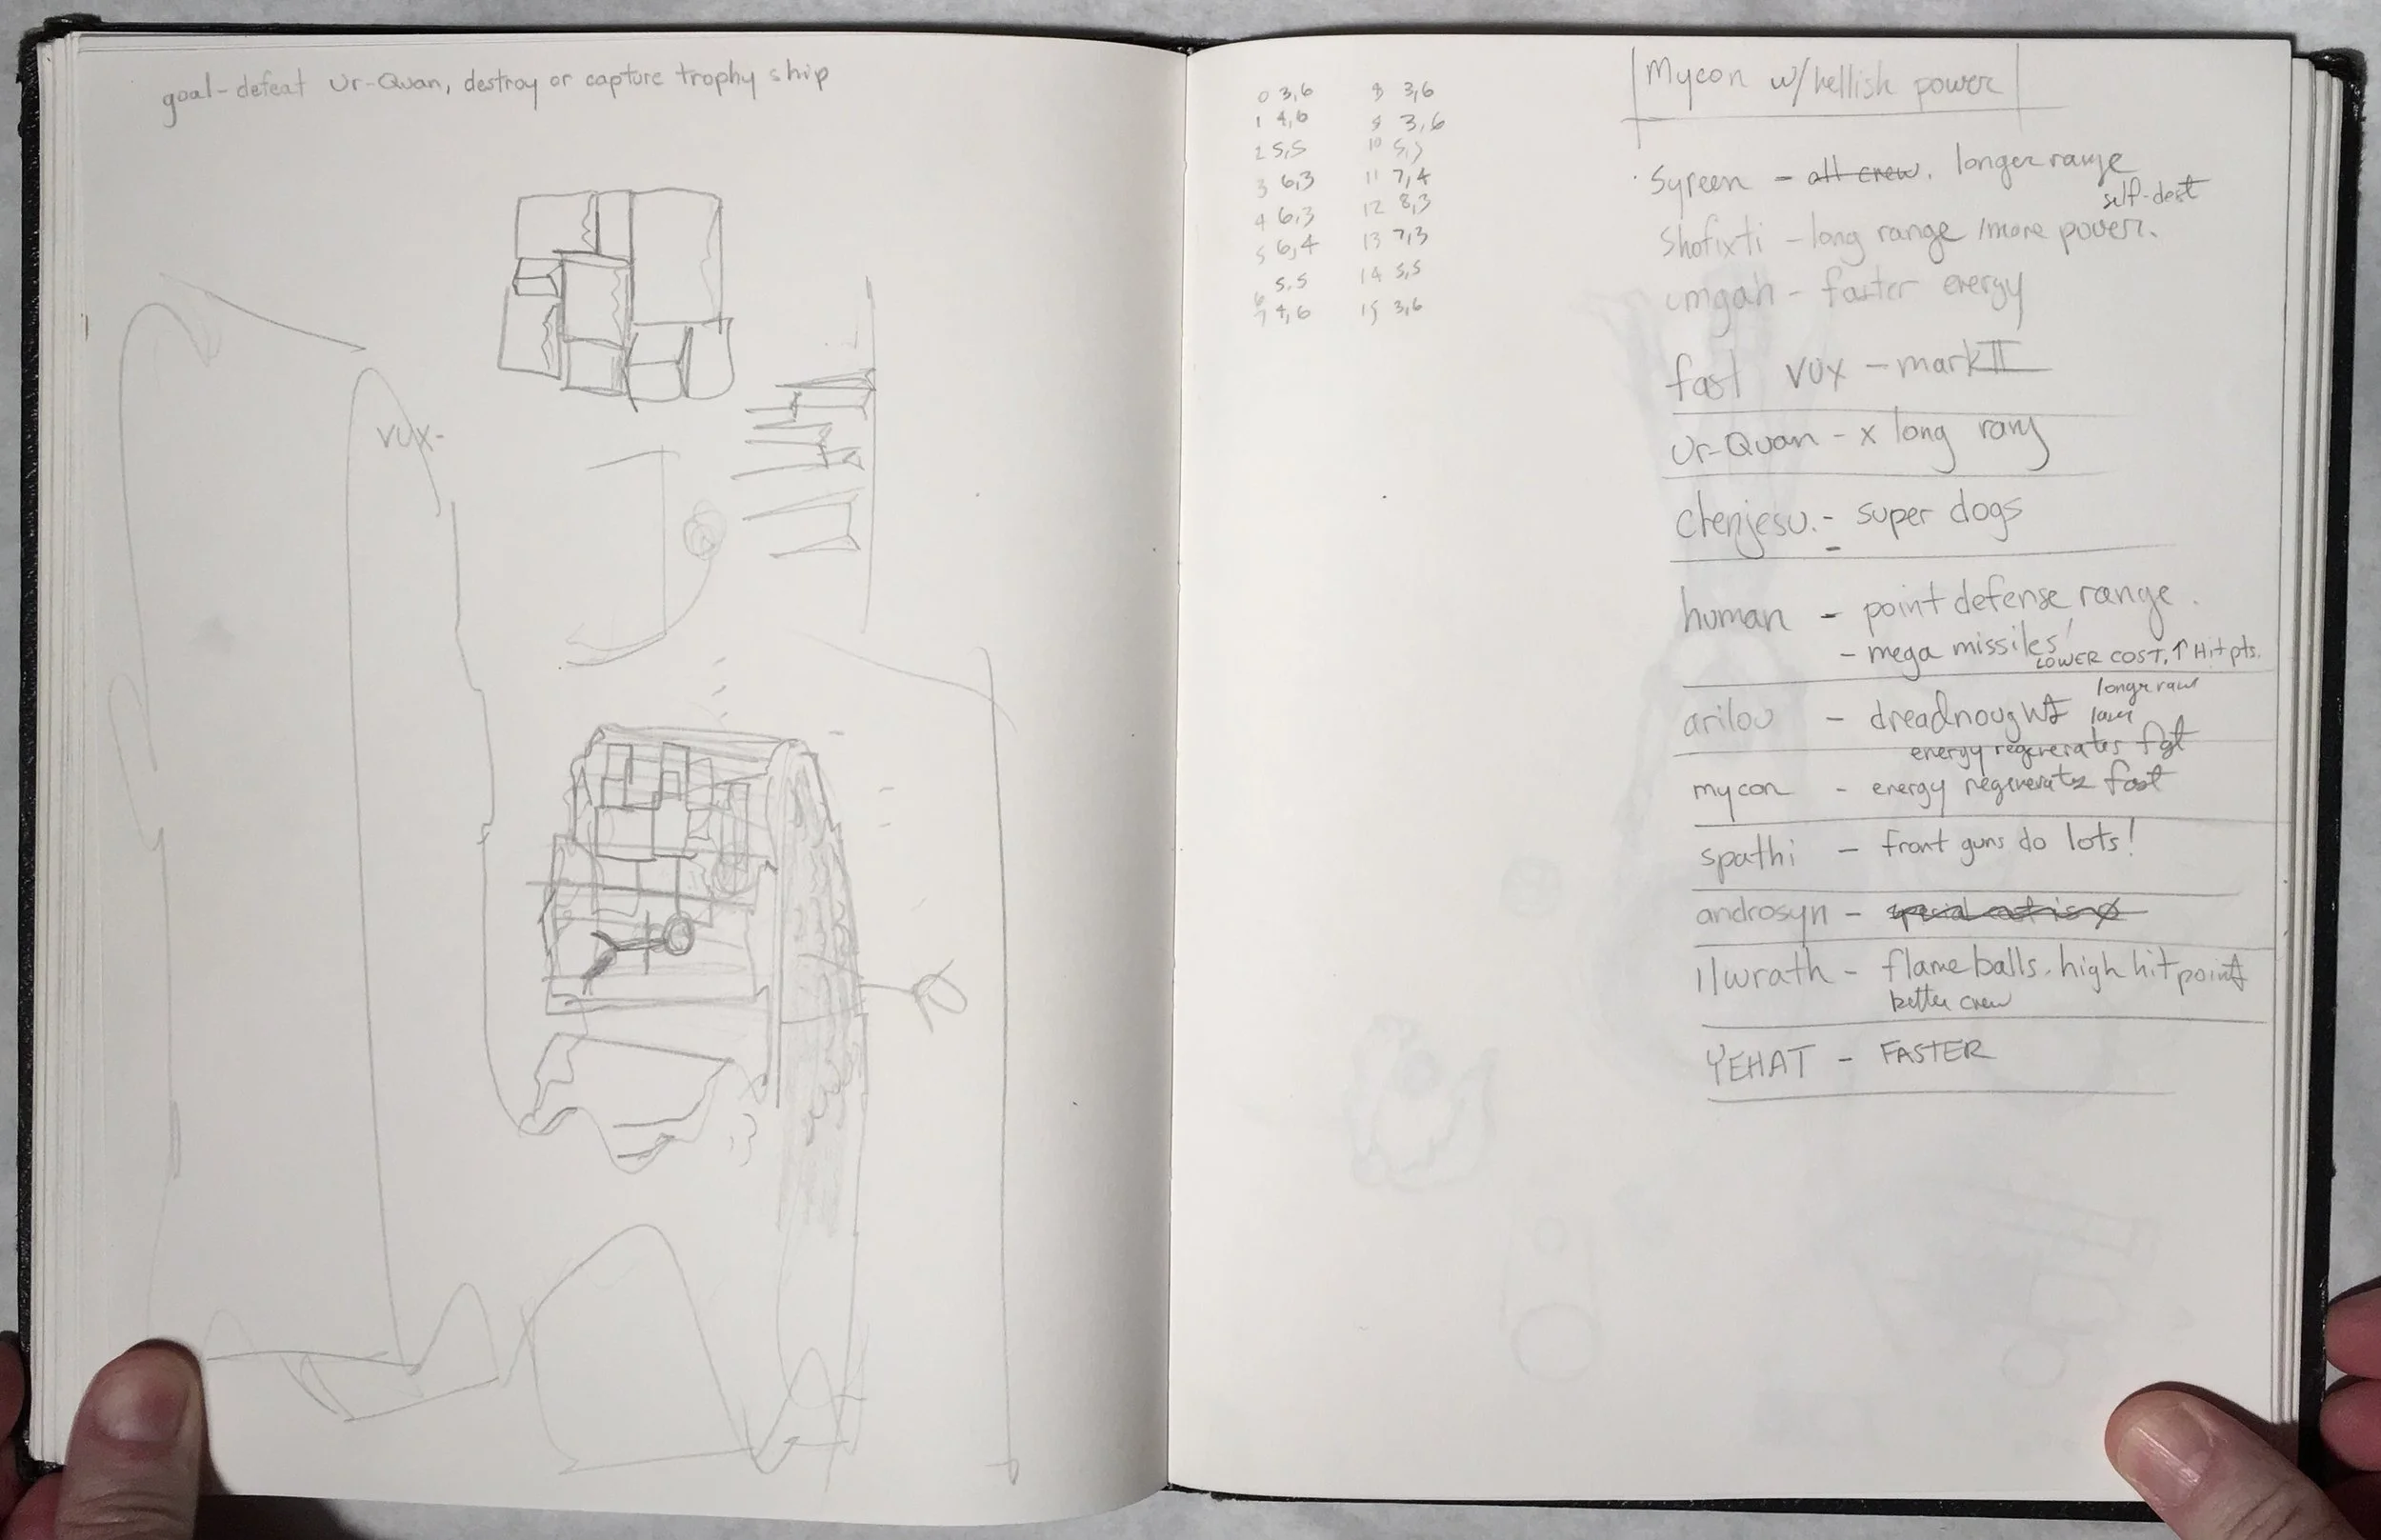 goal-defeat Ur-Quan, destroy or capture trophy ship
VUX-
0 3,6
1 4,6
2 5,5
3 6,3
4 6,3
5 6,4
6 5,5
7 4,6
8 3,6
9 3,6
10 5,5
11 7,4
12 8,3
13 7,3
14 5,5
15 3,6
Mycon w/hellish power
Syreen - all crew. longer range
self-dest
Shofixti - long range /more power.
umgah - faster energy
fast VUX - mark II
Ur-Quan - x long rang
chenjesu. - super dogs
human - point defense range.
- mega missiles
LOWER COST, ↑ Hit pts.
longer
arilou - dreadnought
energy regenerates fast
mycon - energy regenerates fast
spathi - front guns do lots!
androsyn -
Ilwrath - flame balls. high hit point
better crew
YEHAT - FASTER